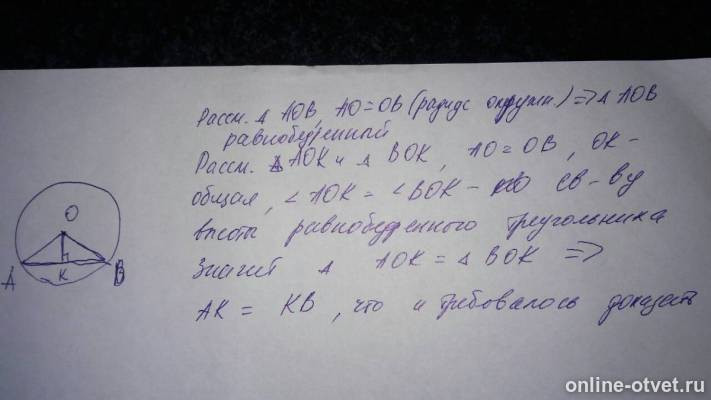 Рассм. △ AOB, AO = OB (радиус окружн.) => △ AOB
равнобедренный
Рассм. △ AOK и △ BOK, AO = OB, OK -
общая, ∠ AOK = ∠ BOK - по св-ву
высоты равнобедренного треугольника
Значит △ AOK = △ BOK =>
AK = KB, что и требовалось доказать
O
A K B
online-otvet.ru